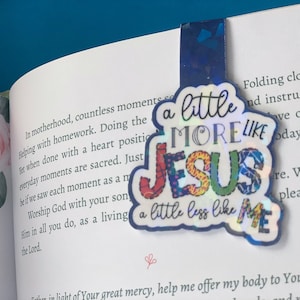 In motherhood, countless moments
Folding clo
helping with homework. Doing the
and instru
when done with a heart position
everyday moments are sacred. Just
be if we saw each moment as a
Worship God with your
Him in all you do, as a living
the Lord.
a little
MORE LIKE
JESUS
a little less like ME
in light of Your great mercy, help me offer my body to You